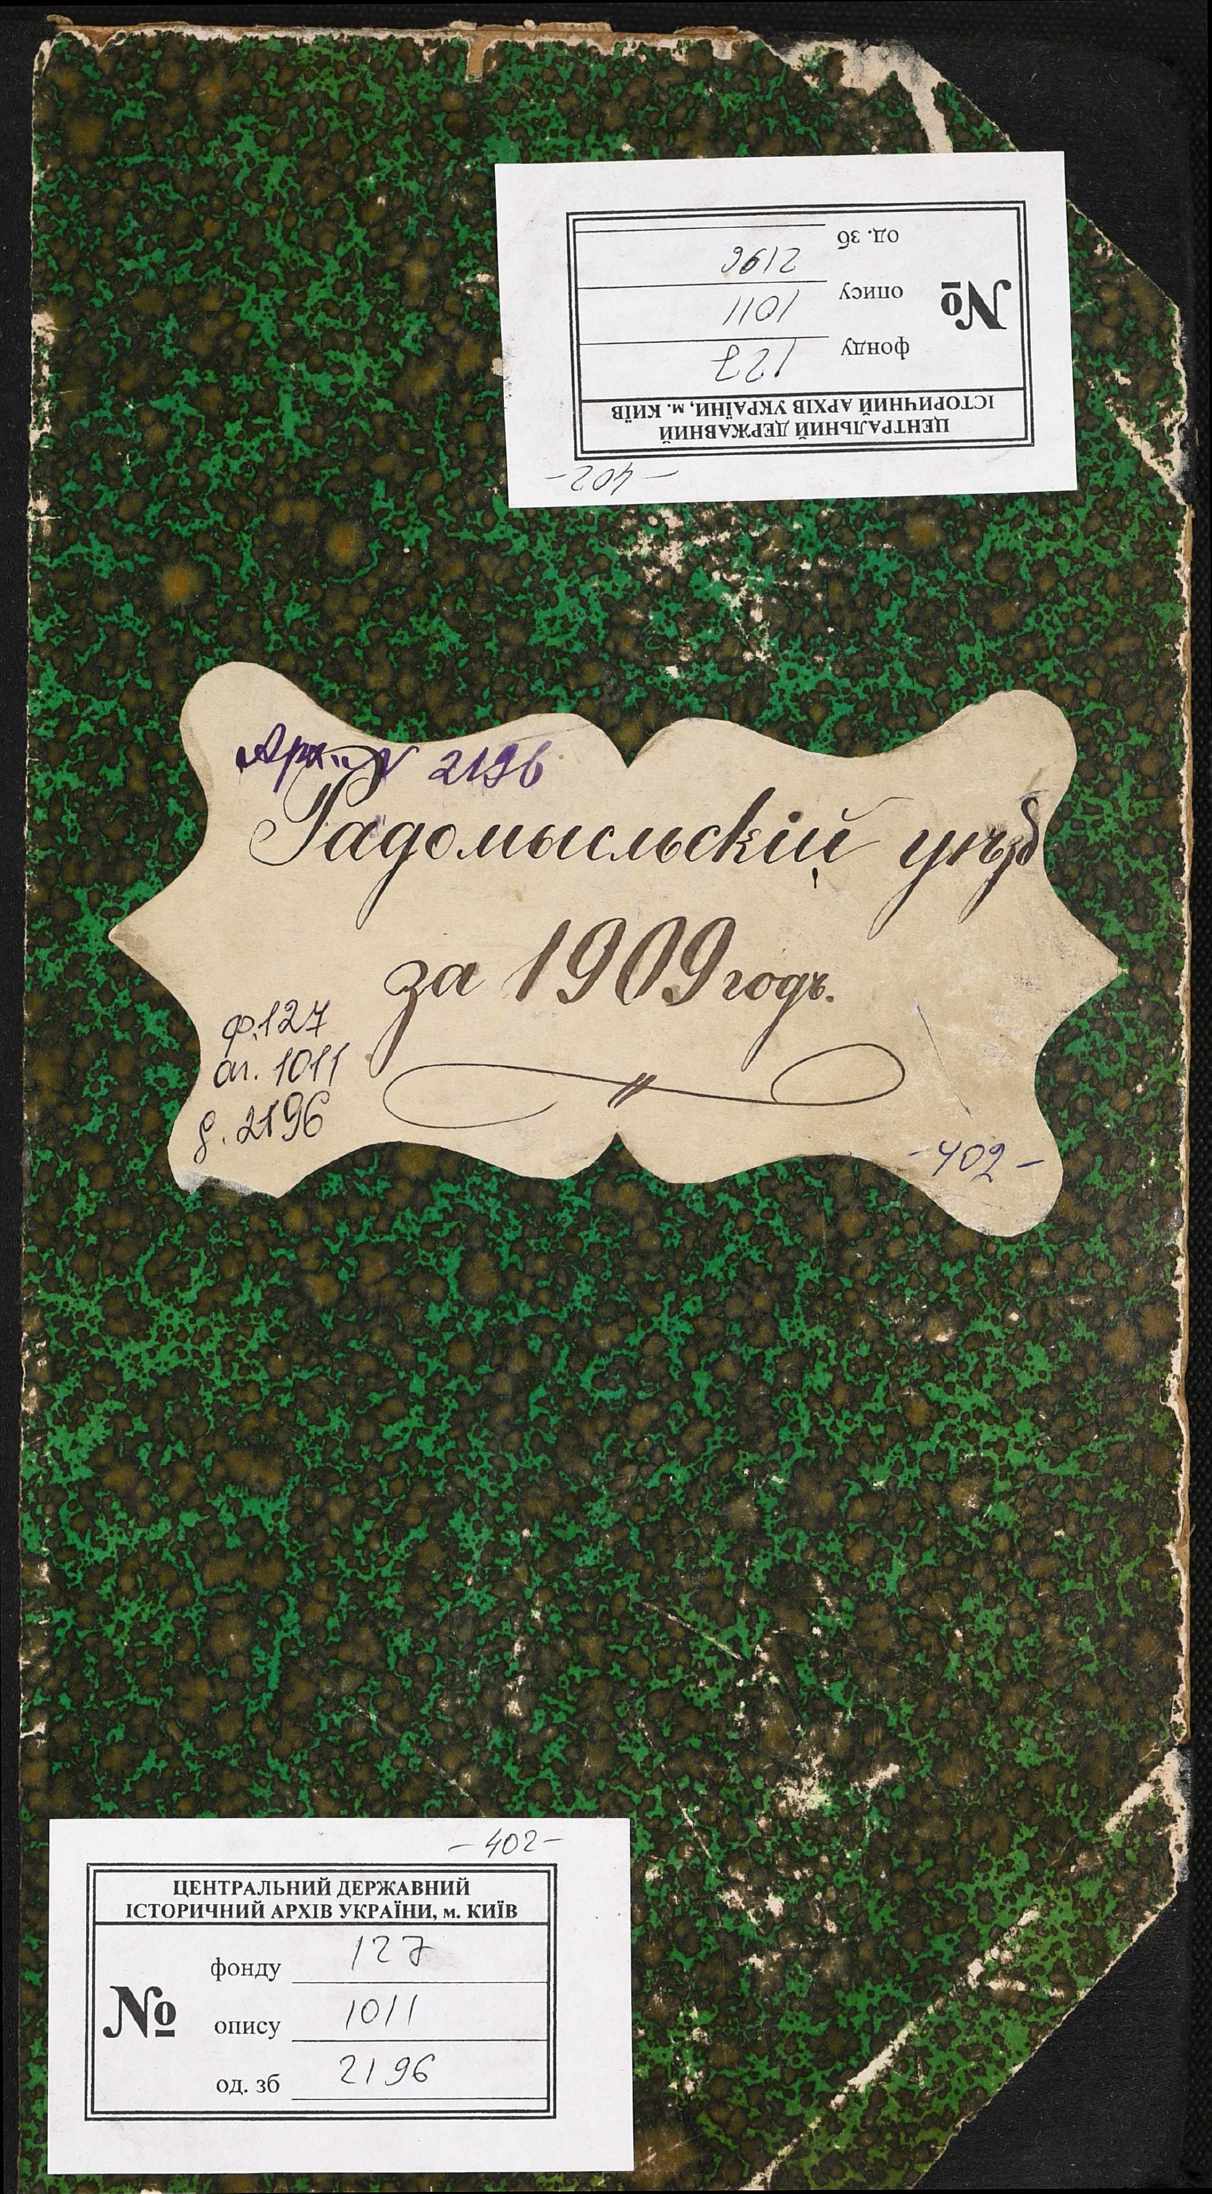 од. зб 2196
№ опису 1011
фонду 127
ЦЕНТРАЛЬНИЙ ДЕРЖАВНИЙ
ІСТОРИЧНИЙ АРХІВ УКРАЇНИ, м. КИЇВ
-402-
Арх. № 2196
Радомысльскій уѣзд
за 1909 годъ.
ф.127
оп. 1011
д. 2196
-402-
-402-
ЦЕНТРАЛЬНИЙ ДЕРЖАВНИЙ
ІСТОРИЧНИЙ АРХІВ УКРАЇНИ, м. КИЇВ
фонду 127
№ опису 1011
од. зб 2196